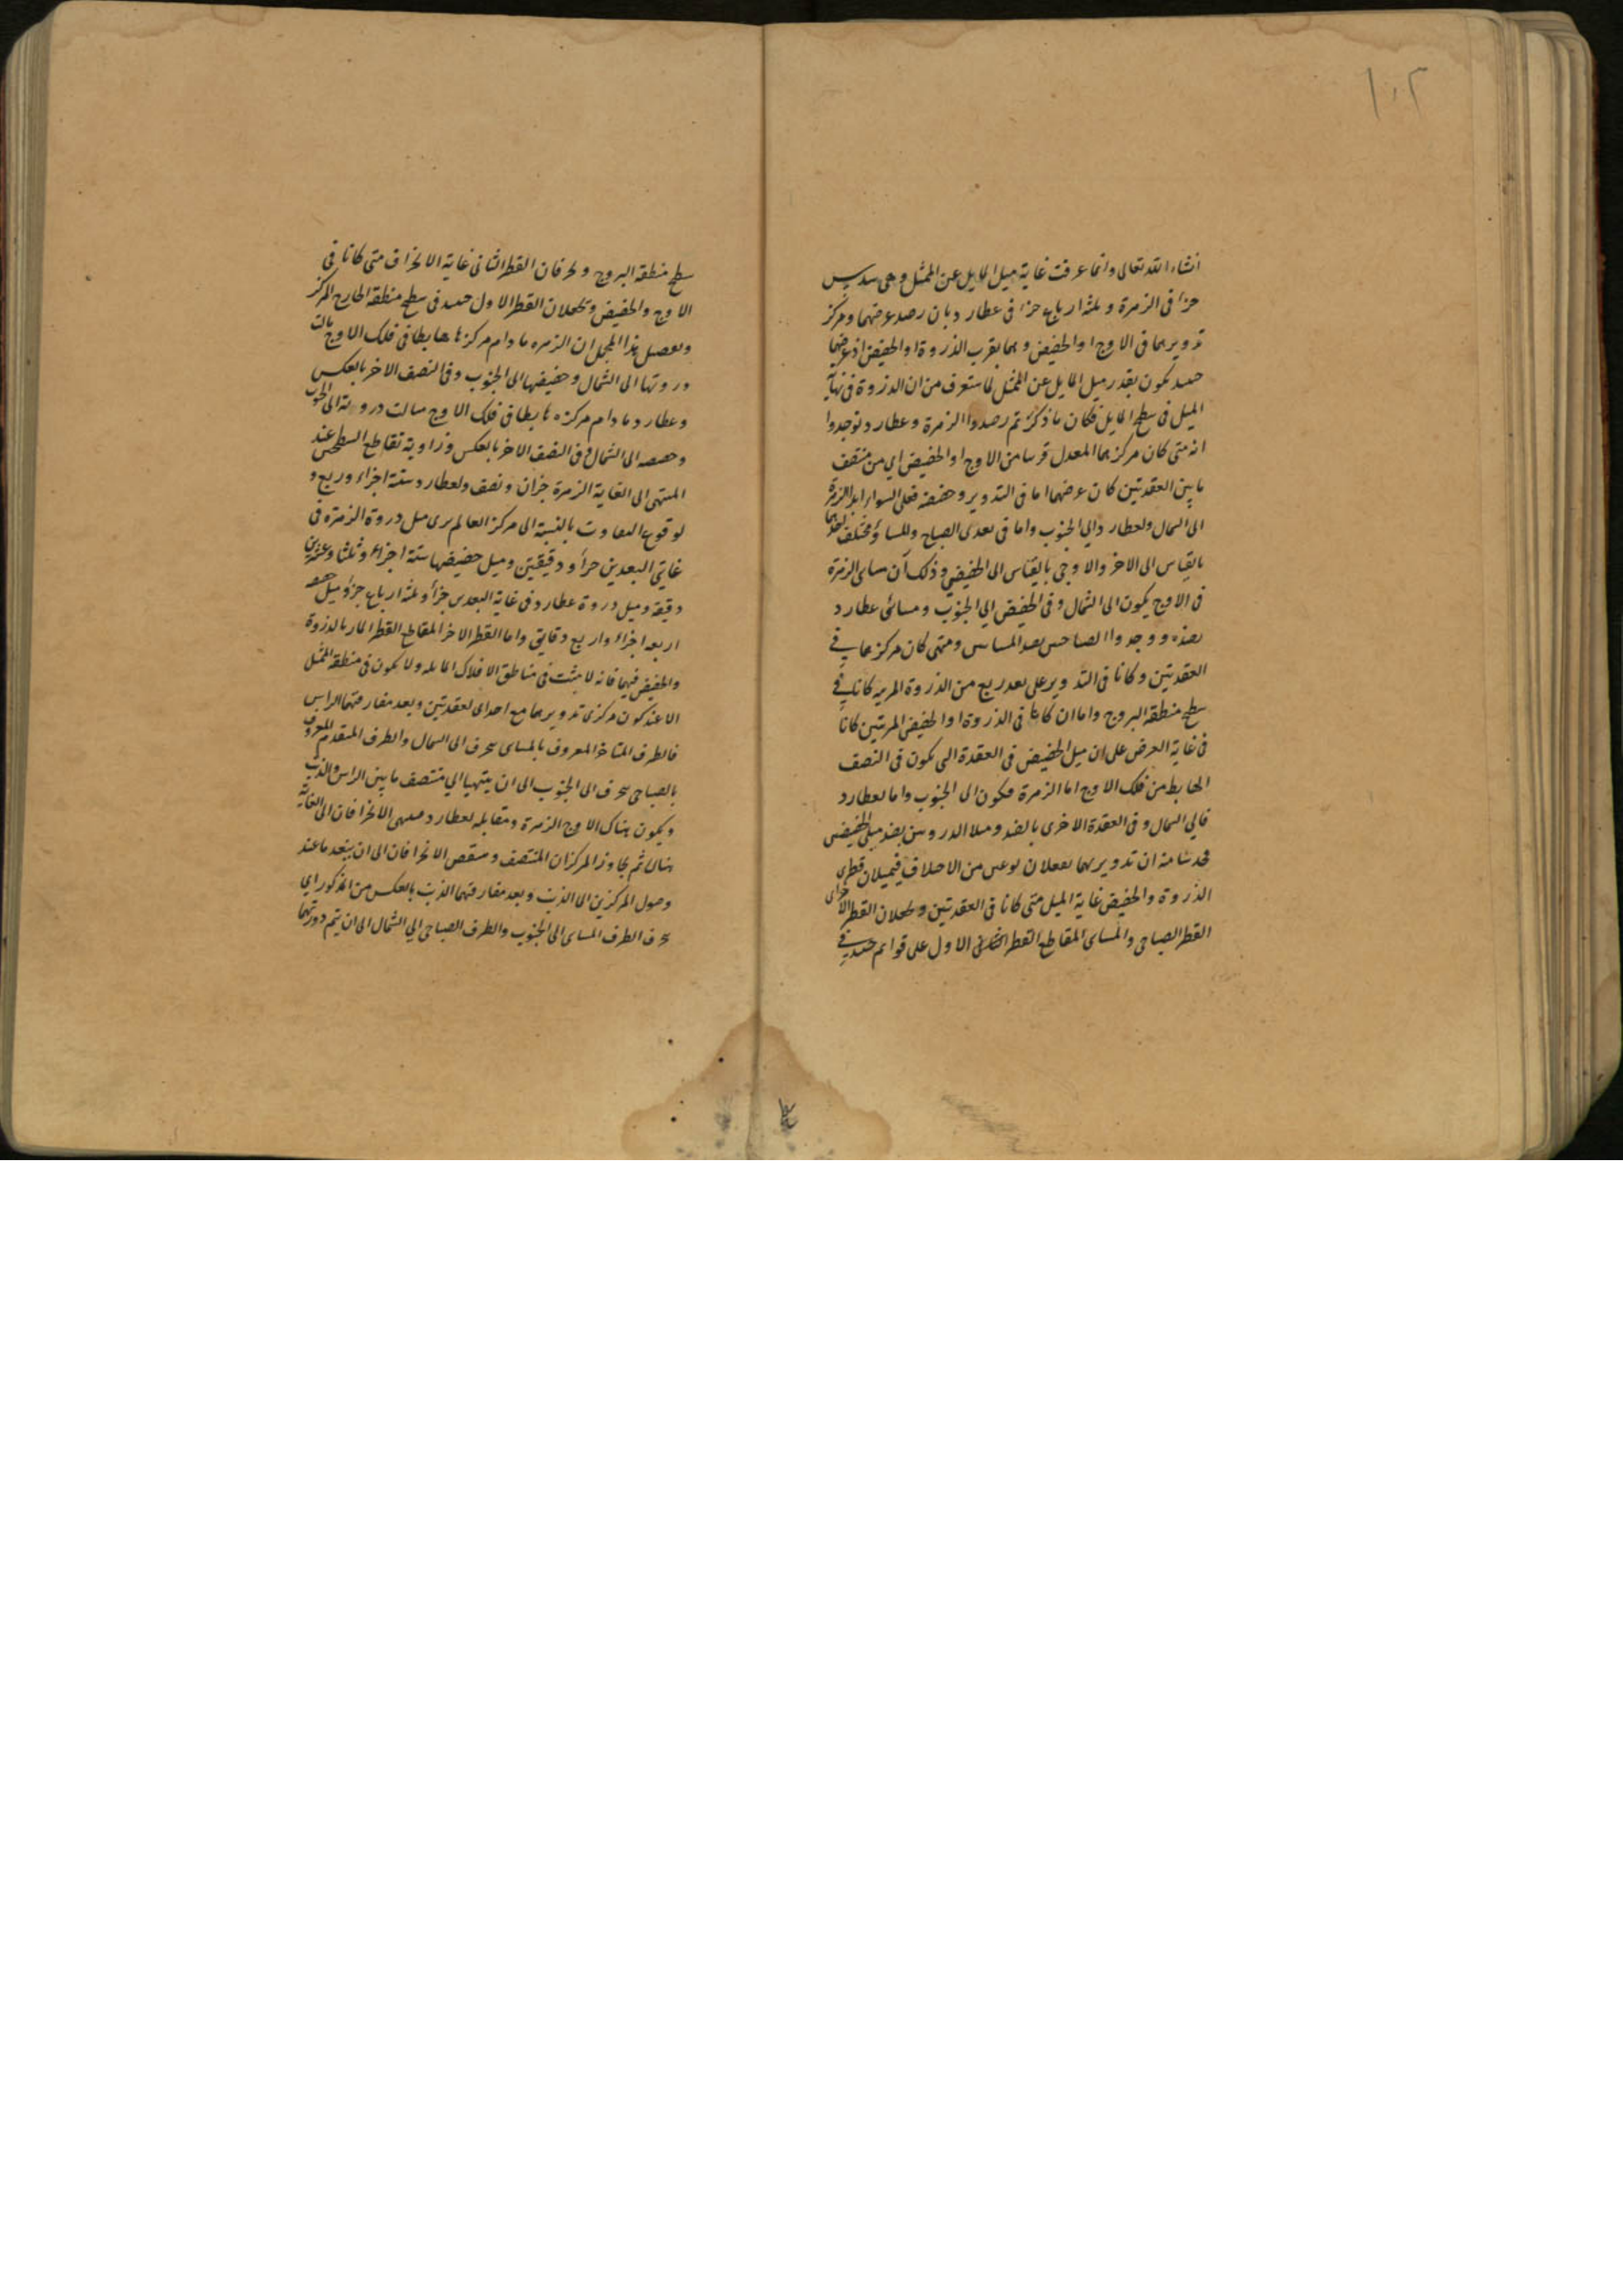 ١٠٢
انشاء الله تعالى وانما عرفت غاية ميل المايل عن الممثل وهى سدس
جزء فى الزهرة وثلثة ارباع جزء فى عطارد بان رصد عرضهما ومركز
تدويرهما فى الاوج او الحضيض وهما بقرب الذروة او الحضيض اذ عرضهما
حينئذ يكون بقدر ميل المايل عن الممثل لما ستعرف من ان الذروة فى نهاية
الميل فى سطح المايل فكان ما ذكر ثم رصدوا الزهرة وعطارد فوجدوا
انه متى كان مركزهما المعدل قريبا من الاوج او الحضيض اى من منتصف
ما بين العقدتين كان عرضهما اما فى التدوير وحضيضه فعلى السواء ابدا للزهرة
الى الشمال ولعطارد والى الجنوب واما فى بعدى الصباح والمساء فمختلف
بالقياس الى الاخر والاوجى بالقياس الى الحضيضى وذلك ان مسائى الزهرة
فى الاوج يكون الى الشمال وفى الحضيض الى الجنوب ومسائى عطارد
بضده ووجدوا الصباحيين بضد المسائيين ومتى كان مركزهما فى
العقدتين وكانا فى التدوير على بعد ربع من الذروة المرئية كانا فى
سطح منطقة البروج واما ان كانا فى الذروة او الحضيض المرئيين كانا
فى غاية العرض على ان ميل الحضيض فى العقدة التى تكون فى النصف
الهابط من فلك الاوج اما الزهرة فيكون الى الجنوب واما لعطارد
فالى الشمال وفى العقدة الاخرى بالضد وميلا الذروتين بضد ميلى الحضيضين
فحدسنا منه ان تدويريهما يفعلان نوعين من الاختلاف فيميلان قطرى
الذروة والحضيض غاية الميل متى كانا فى العقدتين ويجعلان القطر الاخر اى
القطر الصباحى والمسائى المقاطع للقطر الاول على قوايم حينئذ فى
سطح منطقة البروج ويحرفان القطر الثانى غاية الانحراف متى كانا فى
الاوج والحضيض ويجعلان القطر الاول حينئذ فى سطح منطقة الخارج المركز
وتفصيل هذا المجمل ان الزهرة ما دام مركزها هابطا فى فلك الاوج مالت
ذروتها الى الشمال وحضيضها الى الجنوب وفى النصف الاخر بالعكس
وعطارد ما دام مركزه هابطا فى فلك الاوج مالت ذروته الى الجنوب
وحضيضه الى الشمال وفى النصف الاخر بالعكس وزاوية تقاطع السطحين عند
المنتهى الى الغاية الزهرة جزان ونصف ولعطارد ستة اجزاء وربع و
لوقوع التفاوت بالنسبة الى مركز العالم يرى ميل ذروة الزهرة فى
غايتى البعدين جزأ ودقيقتين وميل حضيضها ستة اجزاء وثلثا وعشرين
دقيقة وميل ذروة عطارد فى غاية البعدين جزأ وثلثة ارباع جزؤ وميل حضيضه
اربعة اجزاء واربع دقايق واما القطر الاخر المقاطع للقطر المار بالذروة
والحضيض فيهما فانه لا يثبت فى مناطق الافلاك المايلة ولا يكون فى منطقة الممثل
الا عند كون مركزى تدويرهما مع احدى العقدتين وبعد مفارقتهما الراس
فالطرف المتاخر المعروف بالمسائى ينحرف الى الشمال والطرف المتقدم المعروف
بالصباحى ينحرف الى الجنوب الى ان ينتهيا الى منتصف ما بين الراس والذنب
ويكون هناك الاوج للزهرة ومقابله لعطارد فينتهى الانحرافان الى الغاية
هناك ثم يجاوز المركزان المنتصف وينتقص الانحرافان الى ان ينعدما عند
وصول المركزين الى الذنب وبعد مفارقتهما الذنب بالعكس من المذكور اى
ينحرف الطرف المسائى الى الجنوب والطرف الصباحى الى الشمال الى ان يتم دورتهما